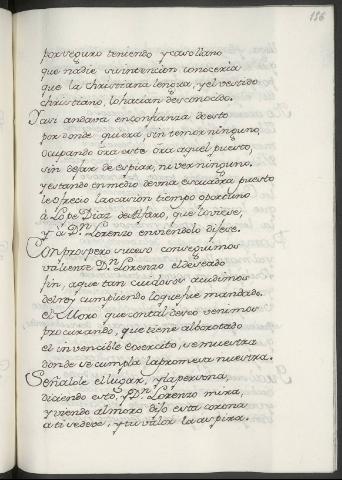 186
por seguro teniendo y casollano
que nadie su intencion conoceria
que la christiana lengua, y el vestido
christiano, lo hacian desconocido.
Y asi andava en confianza de esto
por donde quiera, sin temor ninguno,
ocupando óra este óra aquel puesto,
sin dejar de espiar, ni ver ninguno.
y estando en medio de una escuadra puesto
le ofrecio la ocasion tiempo oportuno
à Lope Diaz de Alfaro, que lo viese,
y à Dn. Lorenzo enviendolo dijese.
Con prospero suceso conseguimos
valiente Dn. Lorenzo el deseado
fin, a que tan cuidosos acudimos
del rey cumpliendo lo que fue mandado.
el Moro que con tal deseo venimos
procurando, que tiene alborotado
el invencible Exercito, se muestra
donde se cumpla la promesa nuestra.
Señalole el lugar, y la persona,
diciendo esto, y Dn. Lorenzo mira,
y viendo al moro dijo esta corona
a ti se deve, y tu valor la aspira.